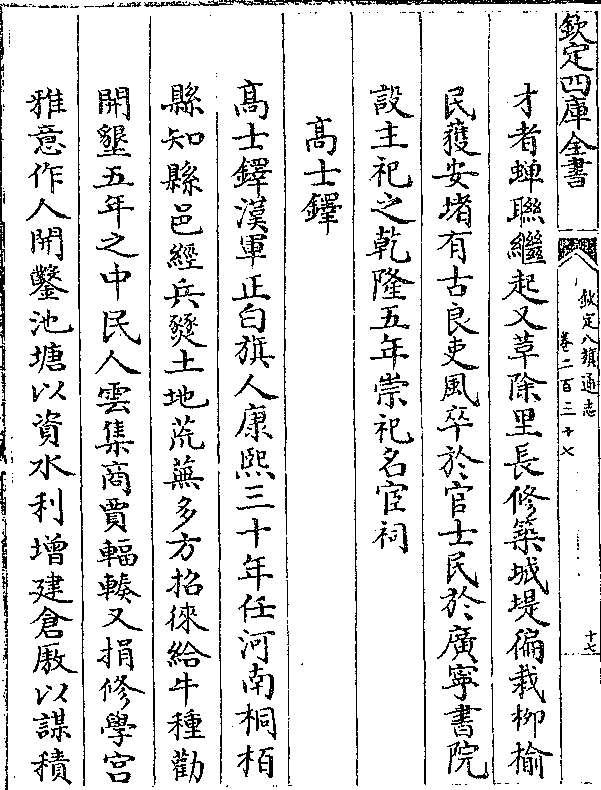 欽定四庫全書
欽定八旗通志
卷二百三十七
十七
才者蟬聯繼起又革除里長修築城堤徧栽柳榆
民獲安堵有古良吏風卒於官士民於廣寧書院
設主祀之乾隆五年崇祀名宦祠
高士鐸
高士鐸漢軍正白旗人康熙三十年任河南桐栢
縣知縣邑經兵燹土地荒蕪多方招徠給牛種勸
開墾五年之中民人雲集商賈輻輳又捐修學宮
雅意作人開鑿池塘以資水利增建倉廒以謀積